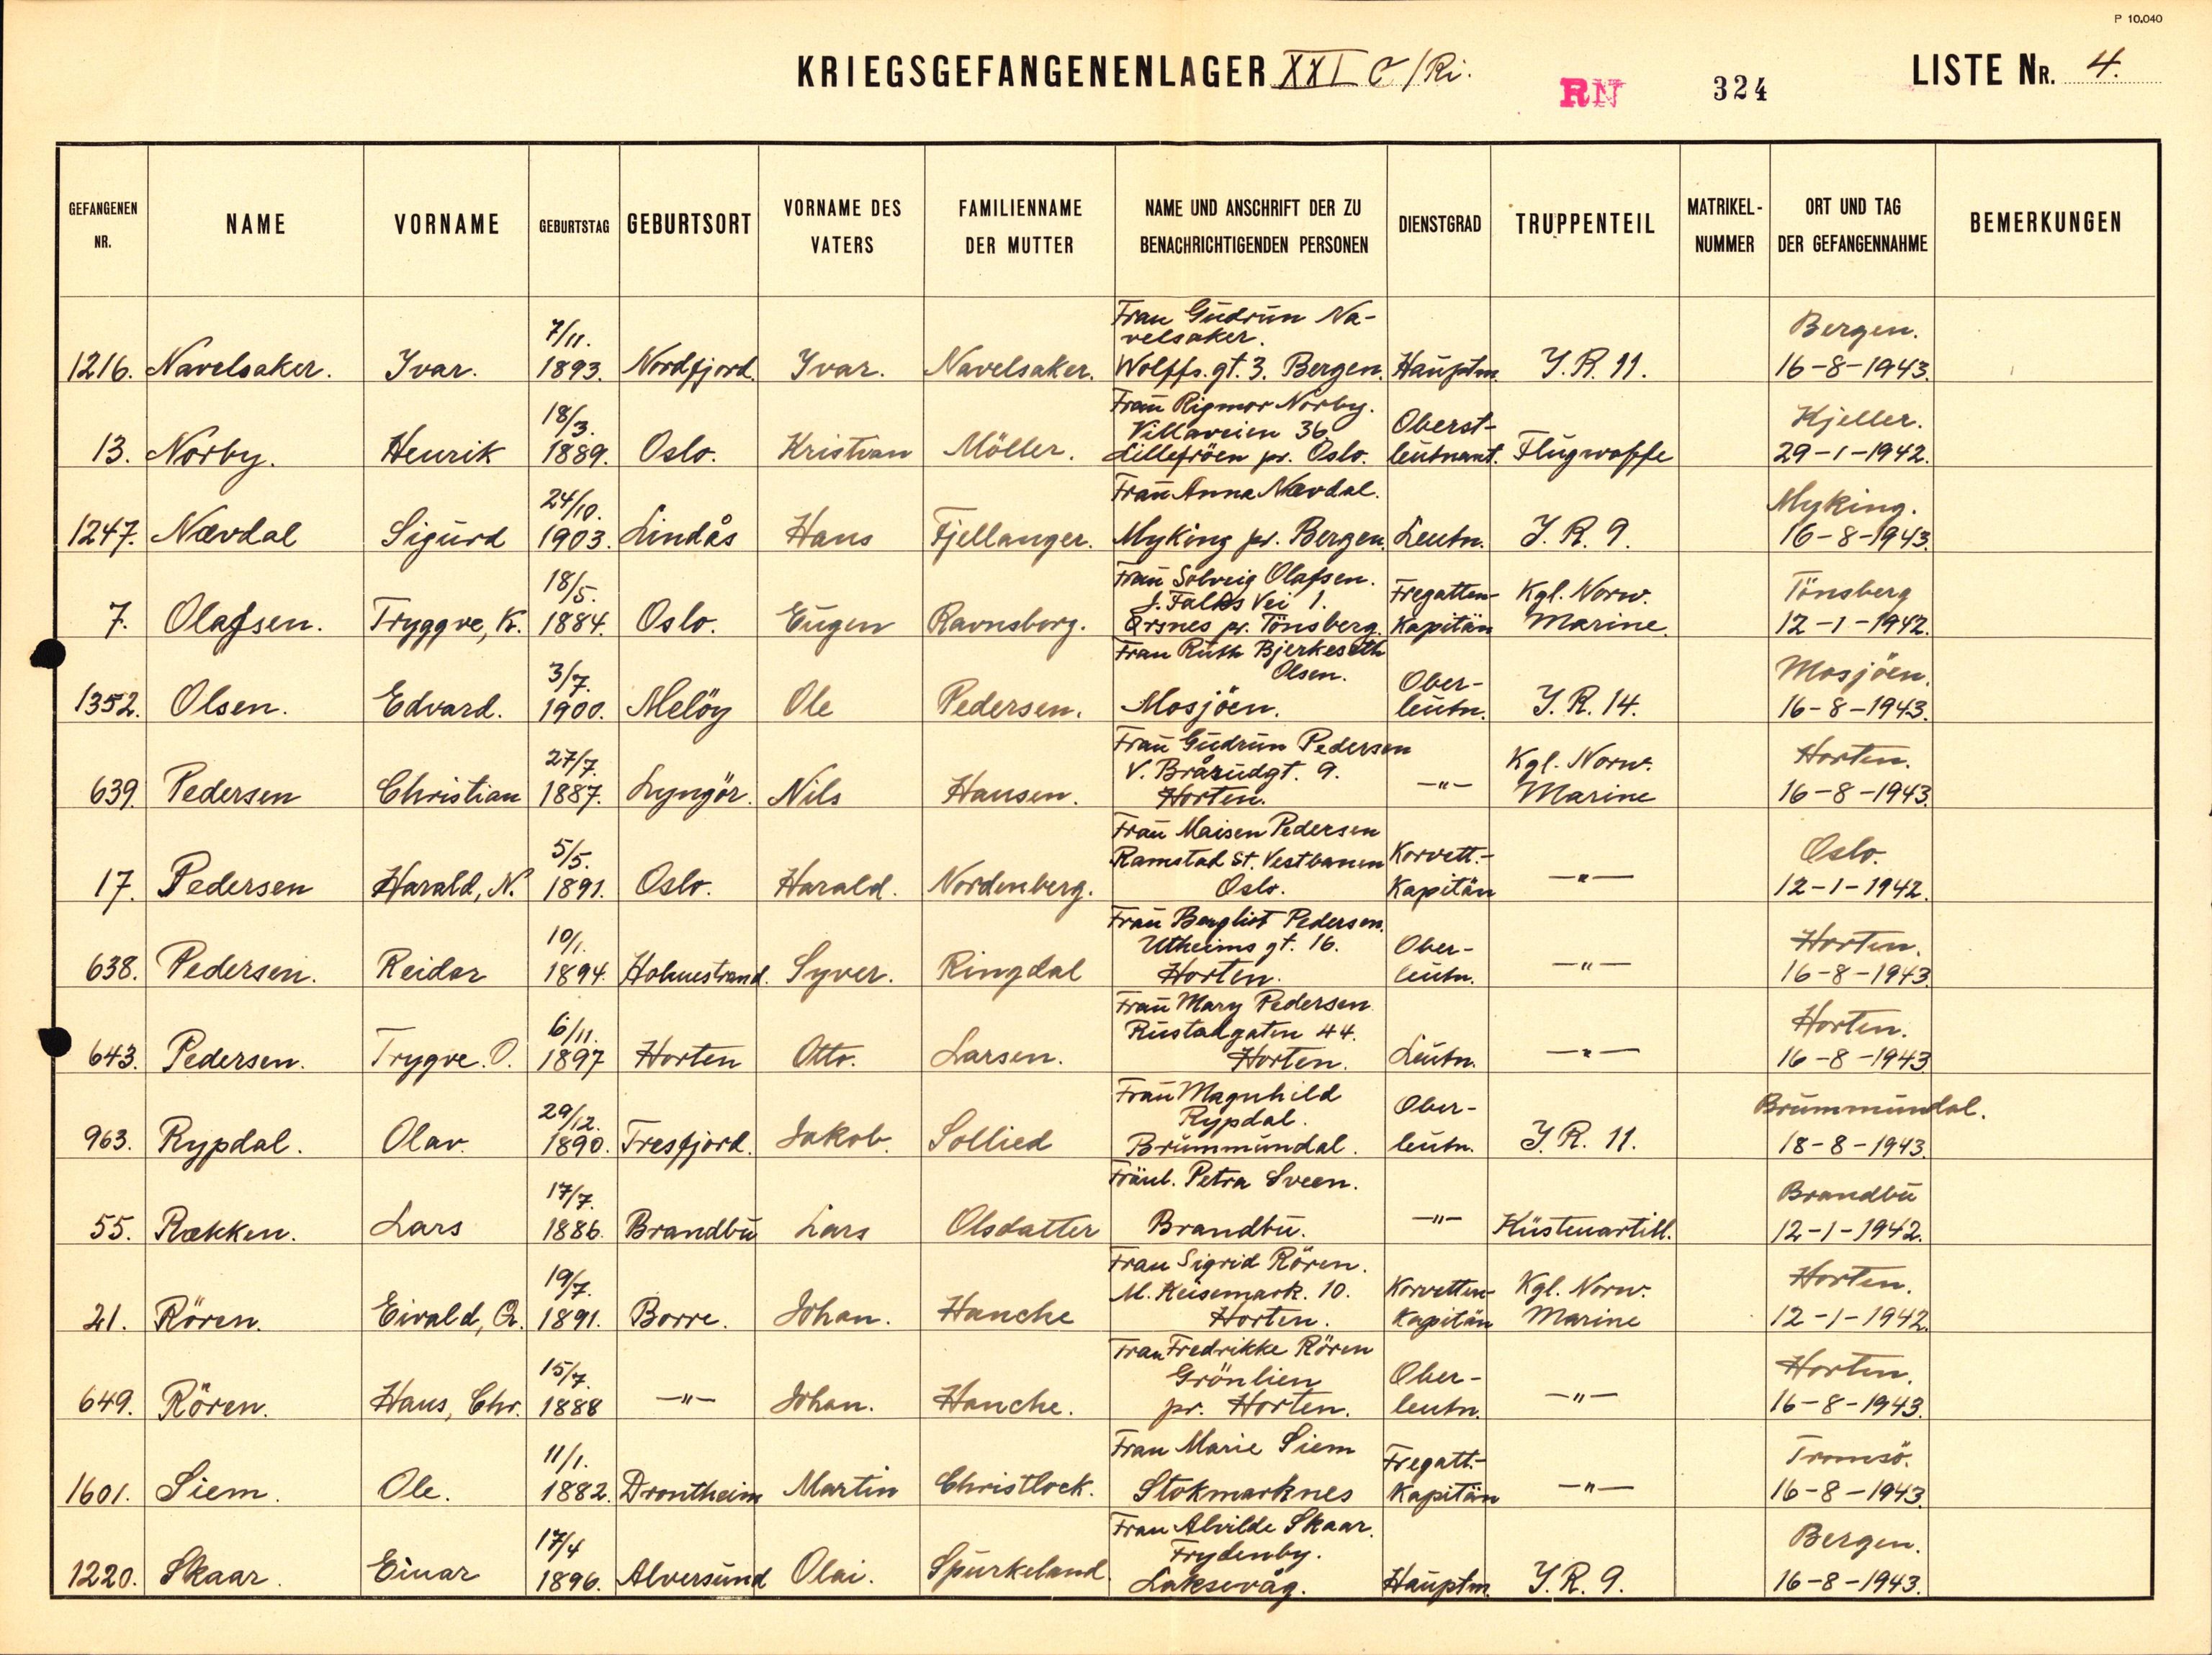 P 10.040
KRIEGSGEFANGENENLAGER XXI C/Ri.
RN 324 LISTE NR. 4.
GEFANGENEN NR. | NAME | VORNAME | GEBURTSTAG | GEBURTSORT | VORNAME DES VATERS | FAMILIENNAME DER MUTTER | NAME UND ANSCHRIFT DER ZU BENACHRICHTIGENDEN PERSONEN | DIENSTGRAD | TRUPPENTEIL | MATRIKEL-NUMMER | ORT UND TAG DER GEFANGENNAHME | BEMERKUNGEN
1216. Navelsaker. Yvar. 7/11. 1893. Nordfjord. Yvar. Navelsaker. Frau Gudrun Navelsaker. Wolffs. gt. 3. Bergen. Hauptm. J.R. 11. Bergen. 16-8-1943.
13. Norby. Henrik 18/3. 1889. Oslo. Kristian Möller. Frau Rigmor Norby. Villaveien 36 Lillefröen pr. Oslo. Oberst-leutnant. Flugwaffe Kjeller. 29-1-1942.
1247. Nævdal Sigurd 24/10. 1903. Lindås Hans Fjellanger. Frau Anna Nævdal. Myking pr. Bergen. Leutn. J.R. 9. Myking. 16-8-1943.
7. Olafsen. Tryggve, K. 18/5. 1884. Oslo. Eugen Ravnsborg. Frau Solveig Olafsen. J. Falks Vei 1. Örsnes pr. Tönsberg. Fregatten-Kapitän Kgl. Norw. Marine. Tönsberg 12-1-1942.
1352. Olsen. Edvard. 3/7. 1900. Melöy Ole Pedersen. Frau Ruth Bjerkeseth Olsen. Mosjöen. Ober-leutn. J.R. 14. Mosjöen. 16-8-1943.
639. Pedersen Christian 27/7. 1887. Lyngör. Nils Hansen. Frau Gudrun Pedersen V. Brårudgt. 9. Horten. -"- Kgl. Norw. Marine Horten. 16-8-1943.
17. Pedersen Harald, N. 5/5. 1891. Oslo. Harald. Nordenberg. Frau Maisen Pedersen Ramstad St. Vestbanen Oslo. Korvett.-Kapitän -"- Oslo. 12-1-1942.
638. Pedersen. Reidar 10/1. 1894. Holmestrand. Syver. Ringdal Frau Bergliot Pedersen. Utheims gt. 16. Horten. Ober-leutn. -"- Horten. 16-8-1943
643. Pedersen. Trygve. O. 6/11. 1897 Horten Otto. Larsen. Frau Mary Pedersen Rustadgaten 44. Horten. Leutn. -"- Horten. 16-8-1943
963. Rypdal. Olav. 29/12. 1890. Tresfjord. Jakob. Sollied Frau Magnhild Rypdal. Brummundal. Ober-leutn. J.R. 11. Brummundal. 18-8-1943.
55. Rækken. Lars 17/7. 1886. Brandbu Lars Olsdatter Fräul. Petra Sveen. Brandbu. -"- Küstenartill. Brandbu 12-1-1942.
21. Rören. Eivald, 19/7. 1891. Borre. Johan. Hanche Frau Sigrid Rören. M. Keisemark. 10. Horten. Korvetten-Kapitän Kgl. Norw. Marine Horten. 12-1-1942.
649. Rören. Hans, Chr. 15/7. 1888 -"- Johan. Hanche. Frau Fredrikke Rören Grönlien pr. Horten. Ober-leutn. -"- Horten. 16-8-1943.
1601. Siem. Ole. 11/1. 1882. Drontheim Martin Christlock. Frau Marie Siem Stokmarknes Fregatt.-Kapitän -"- Tromsö. 16-8-1943.
1220. Skaar. Einar 17/4 1896. Alversund Olai. Spurkeland. Frau Alvilde Skaar. Frydenby. Laksevåg. Hauptm. J.R. 9. Bergen. 16-8-1943.